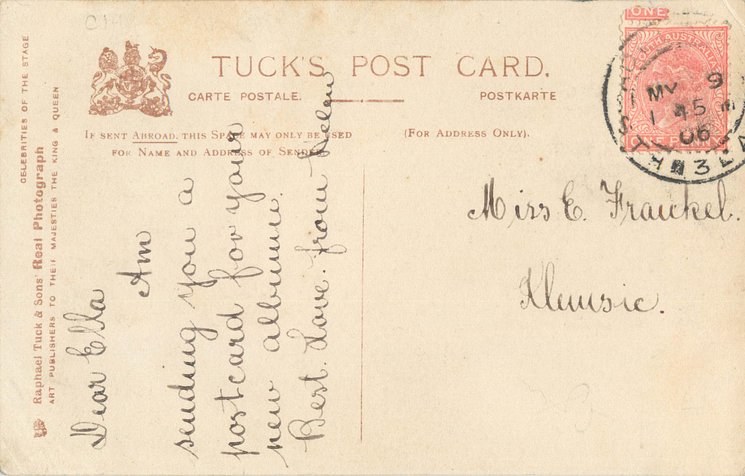 TUCK'S POST CARD.
CARTE POSTALE. POSTKARTE
IF SENT ABROAD, THIS SPACE MAY ONLY BE USED
FOR NAME AND ADDRESS OF SENDER.
(FOR ADDRESS ONLY).
CELEBRITIES OF THE STAGE
Raphael Tuck & Sons' Real Photograph
ART PUBLISHERS TO THEIR MAJESTIES THE KING & QUEEN
Dear Ella
Am
sending you a
postcard for your
new albumn.
Best. Love. from Helen
Miss E. Fraukel.
ONE
MY 9
1 45
06